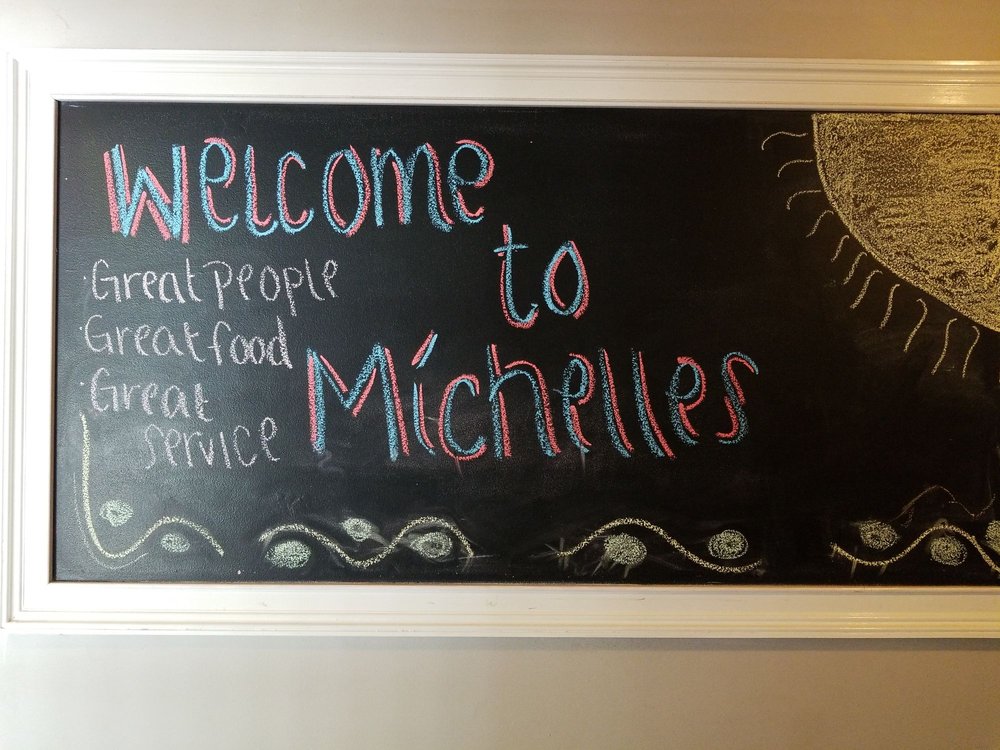 Welcome
to
Michelles
·Great people
·Great food
·Great
service